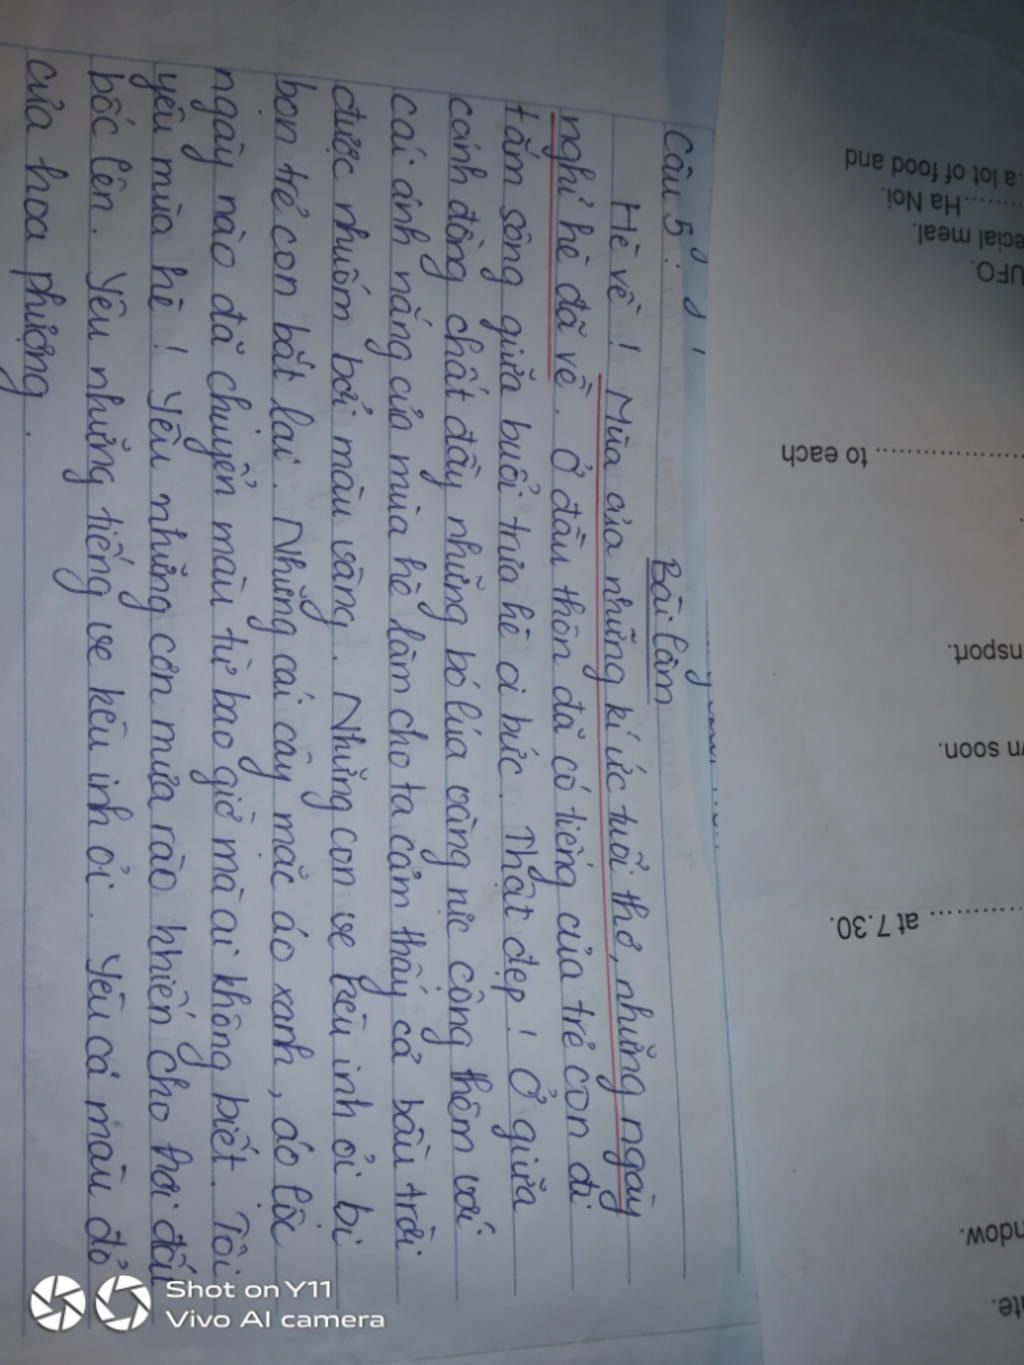 Câu 5:
Bài làm
Hè về! Mùa của những kí ức tuổi thơ, những ngày
nghỉ hè đã về. Ở đầu thôn đã có tiếng của trẻ con đi
tắm sông giữa buổi trưa hè oi bức. Thật đẹp! Ở giữa
cánh đồng chất đầy những bó lúa vàng nực cộng thêm với
cái ánh nắng của mùa hè làm cho ta cảm thấy cả bầu trời
được nhuốm bởi màu vàng. Những con ve kêu inh ỏi bị
bọn trẻ con bắt lại. Những cái cây mặc áo xanh, áo lộc
ngày nào đã chuyển màu từ bao giờ mà ai không biết. Tôi
yêu mùa hè! Yêu những cơn mưa rào khiến cho hơi đất
bốc lên. Yêu những tiếng ve kêu inh ỏi. Yêu cả màu đỏ
của hoa phượng.
a lot of food and
........Ha Noi.
ecial meal.
UFO.
................. to each
nsport.
n soon.
.......... at 7.30.
ndow.
ate.
Shot on Y11
Vivo AI camera